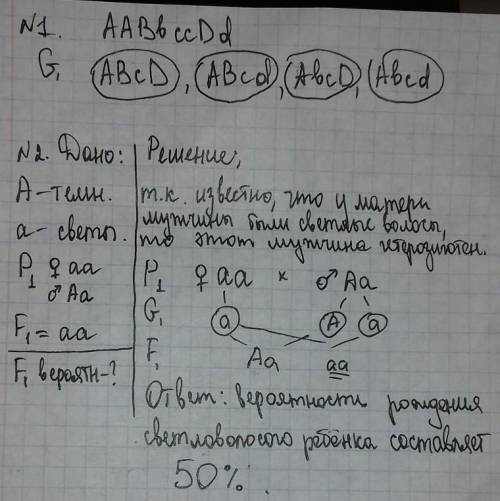 №1. AABbccDd
G₁ ABcD, ABcd, AbcD, Abcd
№2. Дано:
А-темн.
а-светл.
P₁ ♀ aa
♂ Aa
F₁ = aa
F₁ вероятн-?
Решение;
т.к. известно, что у матери
мужчины были светлые волосы,
то этот мужчина гетерозиготен.
P₁ ♀ aa × ♂ Aa
G₁ a A a
F₁ Aa aa
Ответ: вероятность рождения
светловолосого ребёнка составляет
50%.